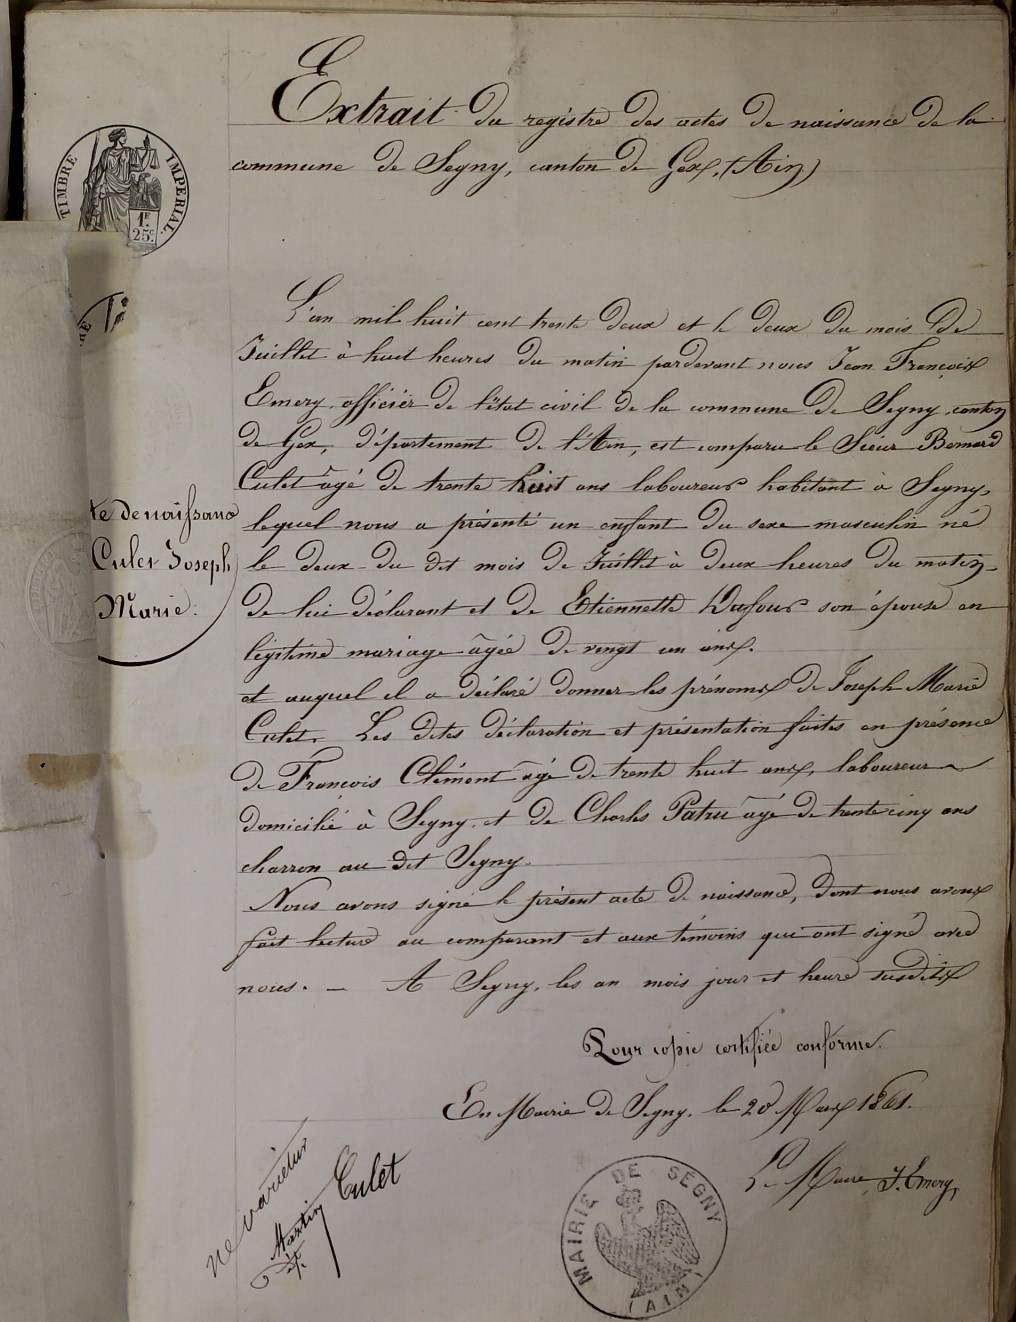 Extrait du registre des actes de naissance de la
commune de Segny, canton de Gex, (Ain)
TIMBRE IMPERIAL.
1F.
25c.
L'an mil huit cent trente deux et le deux du mois de
Juillet à huit heures du matin pardevant nous Jean François
Emery, officier de l'état civil de la commune de Segny, canton
de Gex, département de l'Ain, est comparu le Sieur Bernard
Culet âgé de trente huit ans laboureur habitant à Segny,
lequel nous a présenté un enfant du sexe masculin né
le deux du dit mois de Juillet à deux heures du matin,
de lui déclarant et de Etiennette Dufour son épouse en
légitime mariage âgée de vingt un ans.
et auquel il a déclaré donner les prénoms de Joseph Marie
Culet. Les dites déclaration et présentation faites en présence
de François Clément âgé de trente huit ans, laboureur
domicilié à Segny, et de Charles Patru âgé de trente cinq ans
charron au dit Segny.
Nous avons signé le présent acte de naissance, dont nous avons
fait lecture au comparant et aux témoins qui ont signé avec
nous. — A Segny, les an mois jour et heure susdits
te de naissance
Culet Joseph
Marie.
Pour copie certifiée conforme.
En Mairie de Segny, le 20 Mars 1861.
Le Maire J. Emery,
ne varietur
Martin
Culet
MAIRIE DE SÉGNY
(AIN)